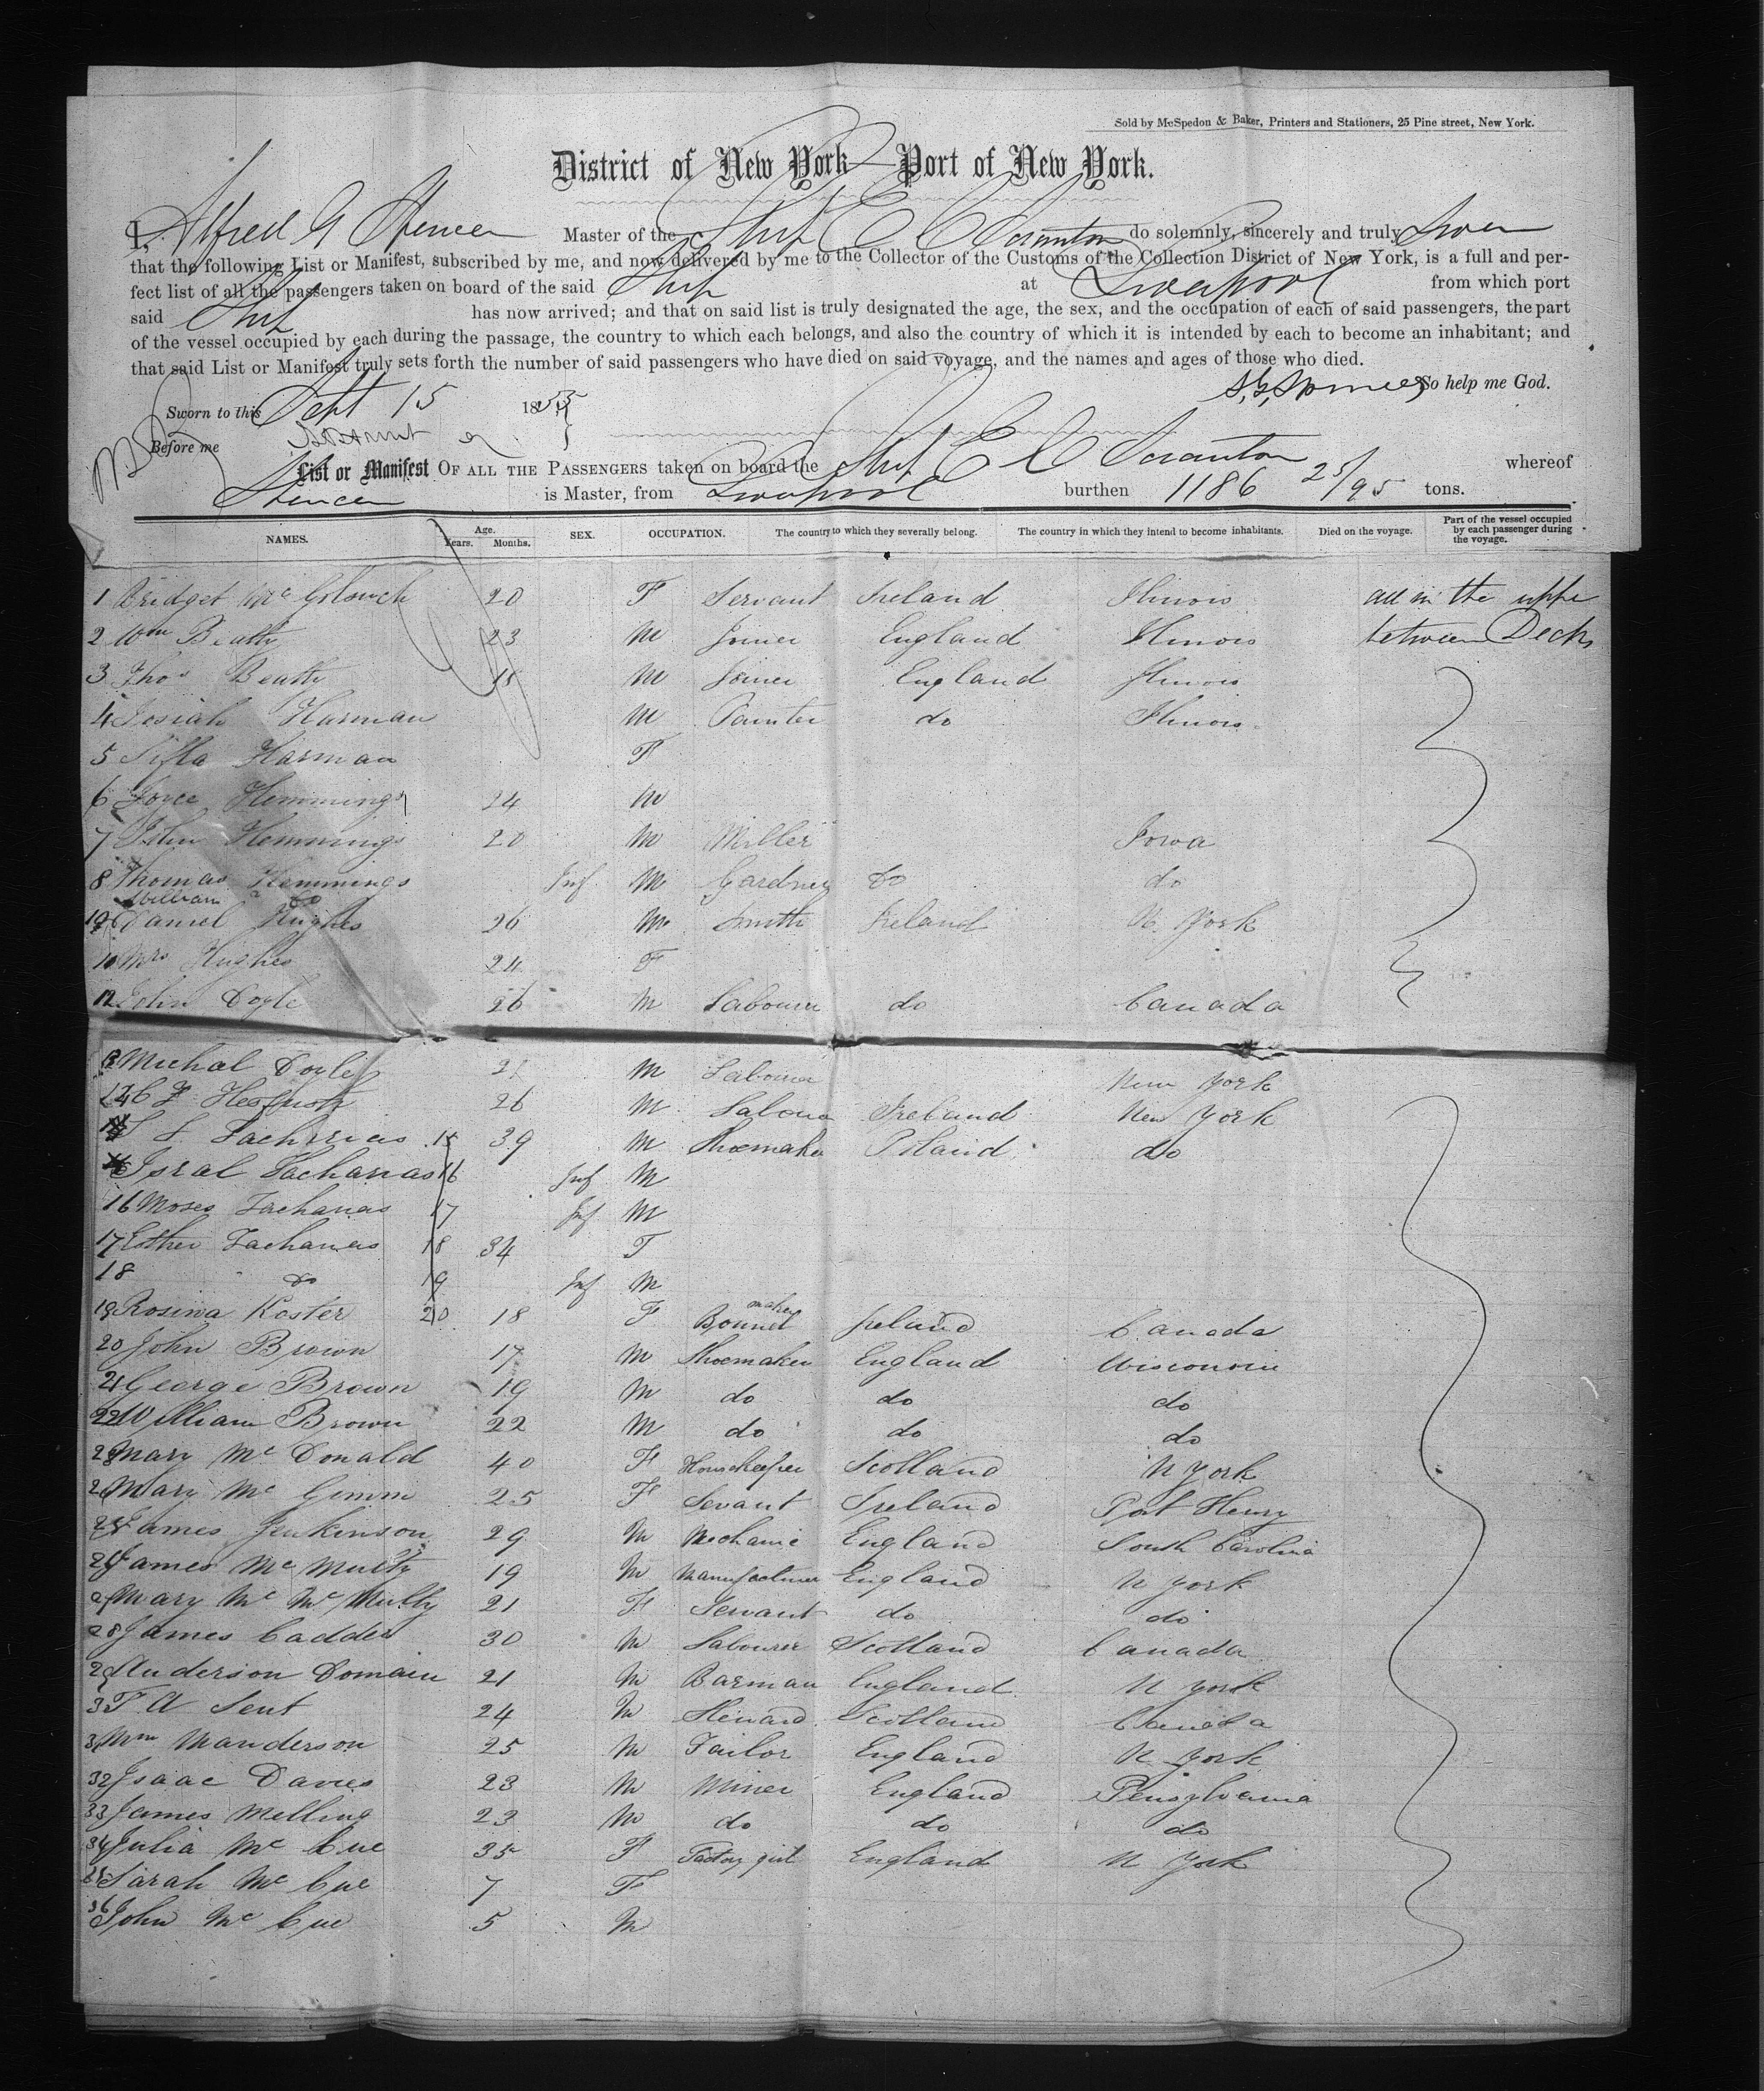 Sold by McSpedon & Baker, Printers and Stationers, 25 Pine street, New York.
District of New York—Port of New York.
I, Alfred G Spencer Master of the Ship E C Scranton do solemnly, sincerely and truly Swear
that the following List or Manifest, subscribed by me, and now delivered by me to the Collector of the Customs of the Collection District of New York, is a full and per-
fect list of all the passengers taken on board of the said Ship at Liverpool from which port
said Ship has now arrived; and that on said list is truly designated the age, the sex, and the occupation of each of said passengers, the part
of the vessel occupied by each during the passage, the country to which each belongs, and also the country of which it is intended by each to become an inhabitant; and
that said List or Manifest truly sets forth the number of said passengers who have died on said voyage, and the names and ages of those who died.
A, G, Spencer So help me God.
Sworn to this Sept 15 1855
Before me
List or Manifest OF ALL THE PASSENGERS taken on board the Ship E C Scranton whereof
Spencer is Master, from Liverpool burthen 1186 25/95 tons.
NAMES. Age. Years. Months. SEX. OCCUPATION. The country to which they severally belong. The country in which they intend to become inhabitants. Died on the voyage. Part of the vessel occupied by each passenger during the voyage.
1 Bridget Mc 20 F Servant Ireland Illinois all in the uppe
2 Wm Beatty 23 M Joiner England Illinois between Decks
3 Thos Beatty 18 M Joiner England Illinois
4 Josiah Harman M Painter do Illinois
5 Harman F
6 Joyce Hemmings 24 M
7 John Hemmings 20 M Miller Iowa
8 Thomas Hemmings Inf M Gardner Do do
William Do
10 Daniel Hughes 26 M Smith Ireland N. York
10 Mrs Hughes 24 F
12 John Doyle 26 M Labourer do Canada
13 Michal Doyle M Labourer New York
14 26 M Labour Ireland New York
Zacharias 15 39 M Shoemaker Poland do
Isral Zacharias 16 Inf M
16 Moses Zacharias 17 Inf M
17 Esther Zacharias 18 34 F
18 do 19 Inf M
19 Rosina Koster 20 18 F Bonnet maker Ireland Canada
20 John Brown 17 M Shoemaker England Wisconsin
21 George Brown 19 M do do do
22 William Brown 22 M do do do
23 Mary Mc Donald 40 F Housekeeper Scotland N York
24 Mary Mc Gimm 25 F Sevant Ireland Port Henry
25 James Jenkinson 29 M Mechanic England South Carolina
26 James Mc Multy 19 M Manufacturer England N York
27 Mary Mc Mc Multy 21 F Servant do do
28 James Cadden 30 M Labourer Scotland Canada
29 Anderson Domain 21 M Barman England N York
30 T. A Sent 24 M Steward Scotland Canada
31 Wm Manderson 25 M Tailor England N York
32 Isaac Davies 23 M Miner England Pensylvania
33 James Melling 23 M do do do
34 Julia Mc Cue 35 F Factory girl England N York
35 Sarah Mc Cue 7 F
36 John Mc Cue 5 M